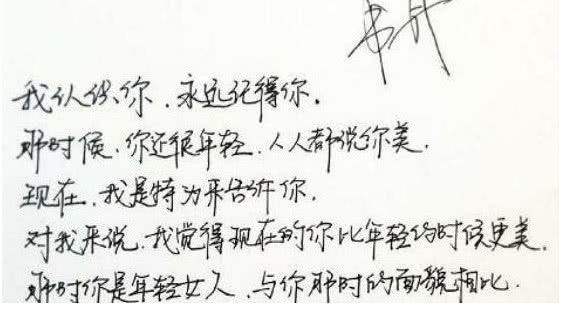 我认识你,永远记得你.
那时候,你还很年轻,人人都说你美.
现在,我是特为来告诉你.
对我来说,我觉得现在的你比年轻的时候更美.
那时你是年轻女人,与你那时的面貌相比.